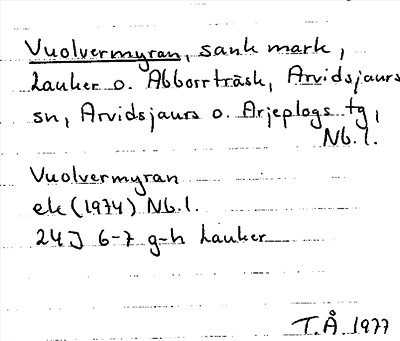 Vuolvermyran, sank mark,
Lauker o. Abborrträsk, Arvidsjaurs
sn, Arvidsjaurs o. Arjeplogs tg,
Nb. l.
Vuolvermyran
ek (1974) Nb. l.
24J 6-7 g-h Lauker
T.Å 1977